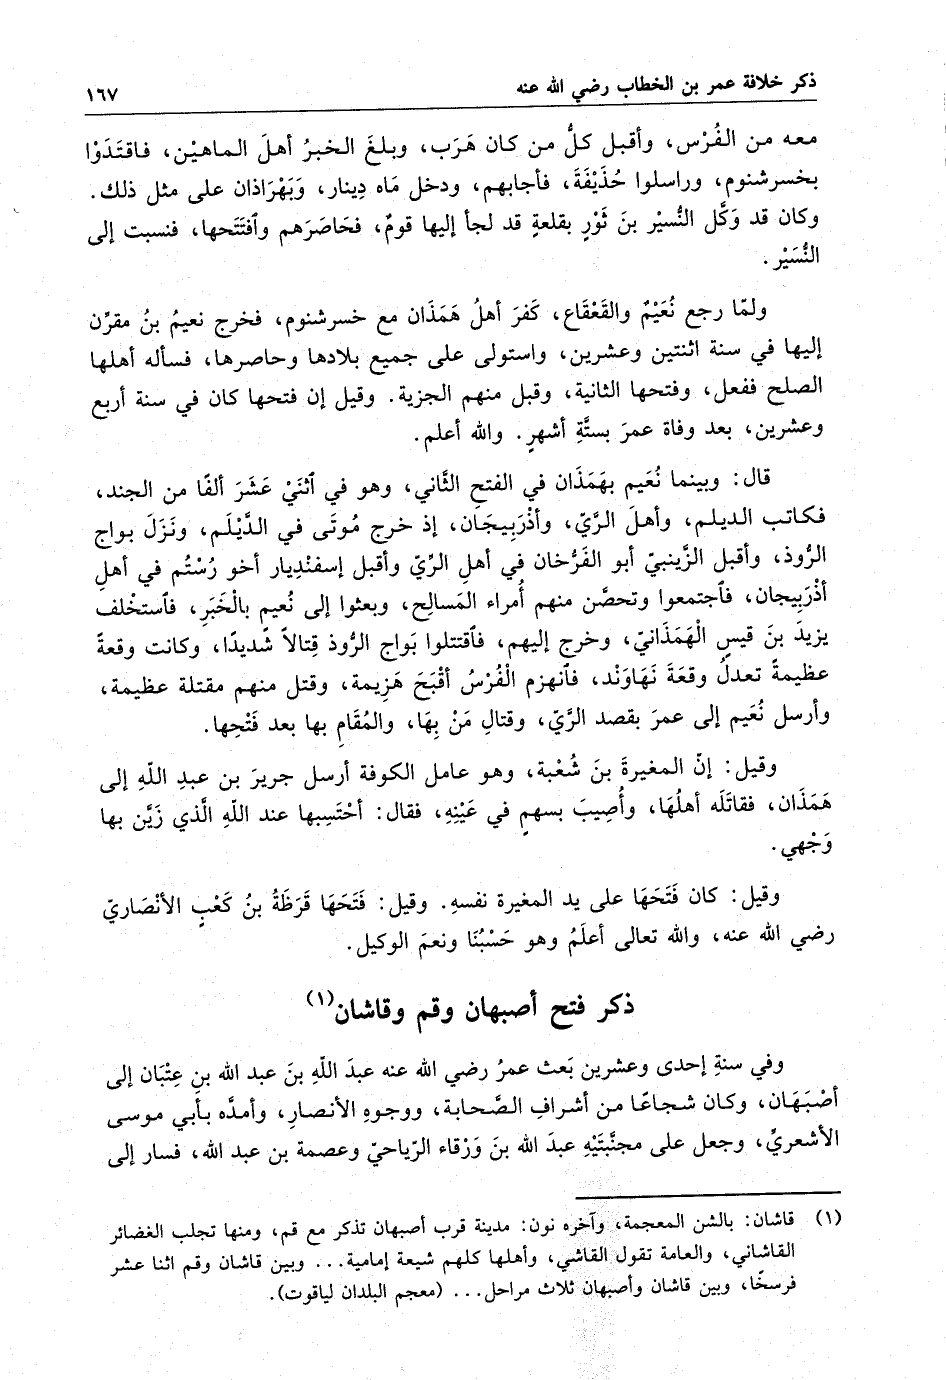 ذكر خلافة عمر بن الخطاب رضي الله عنه ١٦٧
معه من الفُرْس، وأقبل كلُّ من كان هَرَب، وبلغَ الخبرُ أهلَ الماهيْن، فاقتَدَوْا
بخسرشنوم، وراسلوا حُذَيْفَةَ، فأجابهم، ودخل مَاه دِينار، وَبَهْرَاذان على مثل ذلك.
وكان قد وَكَّل النُّسيْر بنَ ثَوْرٍ بقلعةٍ قد لجأ إليها قومٌ، فحَاصَرَهم وٱفتَتَحها، فنسبت إلى
النُّسَيْر.
ولمّا رجع نُعَيْمٌ والقَعْقَاع، كَفرَ أهلُ هَمَذَان مع خسرشنوم، فخرج نعيمُ بنُ مقرِّن
إليها في سنة اثنتين وعشرين، واستولى على جميع بلادها وحاصرها، فسأله أهلها
الصلح ففعل، وفتحها الثانية، وقبل منهم الجزية. وقيل إن فتحها كان في سنة أربع
وعشرين، بعد وفاة عمرَ بستَّةِ أشهرٍ. والله أعلم.
قال: وبينما نُعَيم بهَمَذَان في الفتح الثَّاني، وهو في ٱثنَيْ عَشَرَ ألفًا من الجند،
فكاتب الديلم، وأهلَ الرَّيّ، وأذْرَبِيجَان، إذ خرج مُوتَى في الدَّيْلَم، ونَزَلَ بواج
الرُّوذ، وأقبل الزَّينبيّ أبو الفَرُّخان في أهلِ الرِّيّ وأقبل إسفنْدِيار أخو رُسْتُم في أهلِ
أذْرَبِيجان، فٱجتمعوا وتحصَّن منهم أُمراء المَسالِح، وبعثوا إلى نُعيم بالْخَبَرِ، فٱستخْلف
يزيدَ بنَ قيسٍ الْهَمَذَانيّ، وخرج إليهم، فٱقتتلوا بَواج الرُّوذ قِتالاً شَديدًا، وكانت وقعةً
عظيمةً تعدلُ وقعَةَ نَهَاوَنْد، فٱنهزم الْفُرْسُ أقْبَحَ هَزِيمة، وقتل منهم مقتلة عظيمة،
وأرسل نُعَيم إلى عمرَ بقصد الرَّيّ، وقتالِ مَنْ بِهَا، والمُقَامِ بها بعد فَتْحِها.
وقيل: إنّ المغيرةَ بنَ شُعْبة، وهو عامل الكوفة أرسل جريرَ بن عبدِ اللّهِ إلى
هَمَذَان، فقاتَلَه أهلُهَا، وأُصِيبَ بسهمٍ في عَيْنِهِ، فقال: أحْتَسِبها عند اللّهِ الَّذي زَيَّن بها
وَجْهي.
وقيل: كان فَتَحَهَا على يد المغيرة نفسهِ. وقيل: فَتَحَهَا قَرَظَةُ بنُ كَعْبٍ الأنْصَاريّ
رضي الله عنه، والله تعالى أعلَمُ وهو حَسْبُنَا ونعمَ الوكيل.
ذكر فتح أصبهان وقم وقاشان(١)
وفي سنةِ إحدى وعشرين بَعث عمرُ رضي الله عنه عبدَ اللّهِ بنَ عبد الله بنِ عِتْبَان إلى
أصْبَهَان، وكان شجاعًا من أشرافِ الصَّحابة، ووجوهِ الأنصارِ، وأمدَّه بأبي موسى
الأشعريِّ، وجعل على مجنَّبَتَيْهِ عبدَ الله بنَ وَرْقاء الرّياحيّ وعصمة بن عبد الله، فسار إلى
(١) قاشان: بالشن المعجمة، وآخره نون: مدينة قرب أصبهان تذكر مع قم، ومنها تجلب الغضائر
القاشاني، والعامة تقول القاشي، وأهلها كلهم شيعة إمامية... وبين قاشان وقم اثنا عشر
فرسخًا، وبين قاشان وأصبهان ثلاث مراحل... (معجم البلدان لياقوت).